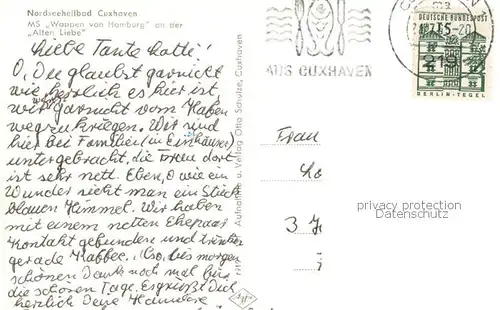 Nordseeheilbad Cuxhaven
MS „Wappen von Hamburg" an der
„Alten Liebe"
Liebe Tante Lotte!
O, Du glaubst garnicht
wie herrlich es hier ist,
wir werden garnicht vom Hafen
wegzukriegen. Wir sind
hier bei Familien (in Einhäuser)
untergebracht, die Frau dort
ist sehr nett. Eben, o wie ein
Wunder sieht man ein Stück
blauen Himmel. Wir haben
mit einem netten Ehepaar
Kontakt gefunden und trinken
gerade Kaffee. Also, bis morgen
schönen Dank noch mal für
die schönen Tage. Es grüßt Dich
herzlich Deine Hannelore
Aufnahme u. Verlag Otto Schulze, Cuxhaven
AUS CUXHAVEN
DEUTSCHE BUNDESPOST
65-20
BERLIN-TEGEL
Frau
Lo
3
privacy protection
Datenschutz